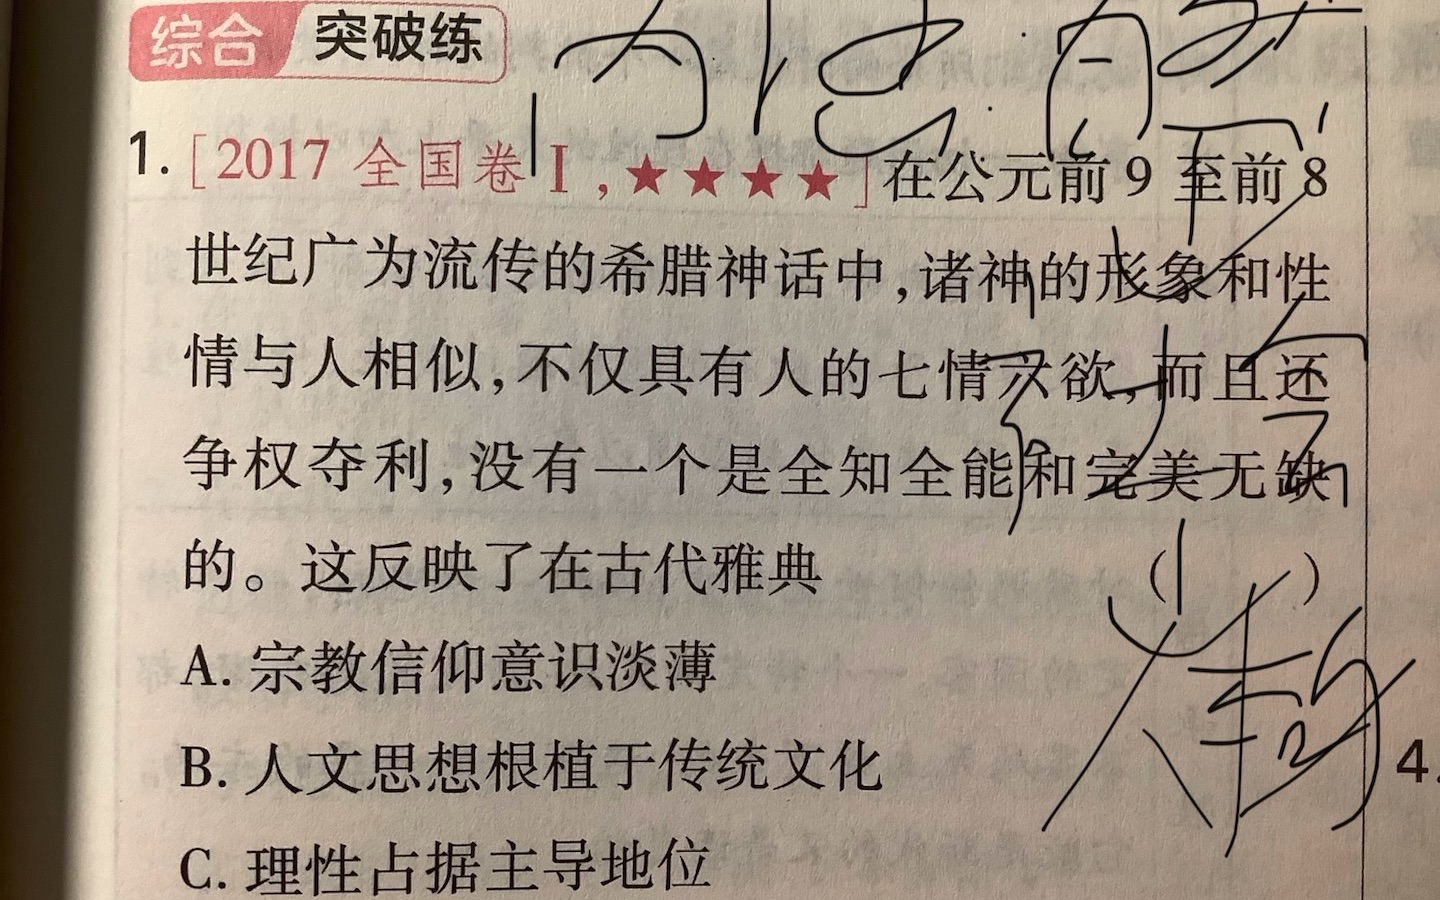 综合 突破练
1. [2017 全国卷Ⅰ,★★★★]在公元前9至前8
世纪广为流传的希腊神话中,诸神的形象和性
情与人相似,不仅具有人的七情六欲,而且还
争权夺利,没有一个是全知全能和完美无缺
的。这反映了在古代雅典 ( )
A. 宗教信仰意识淡薄
B. 人文思想根植于传统文化
C. 理性占据主导地位
4.